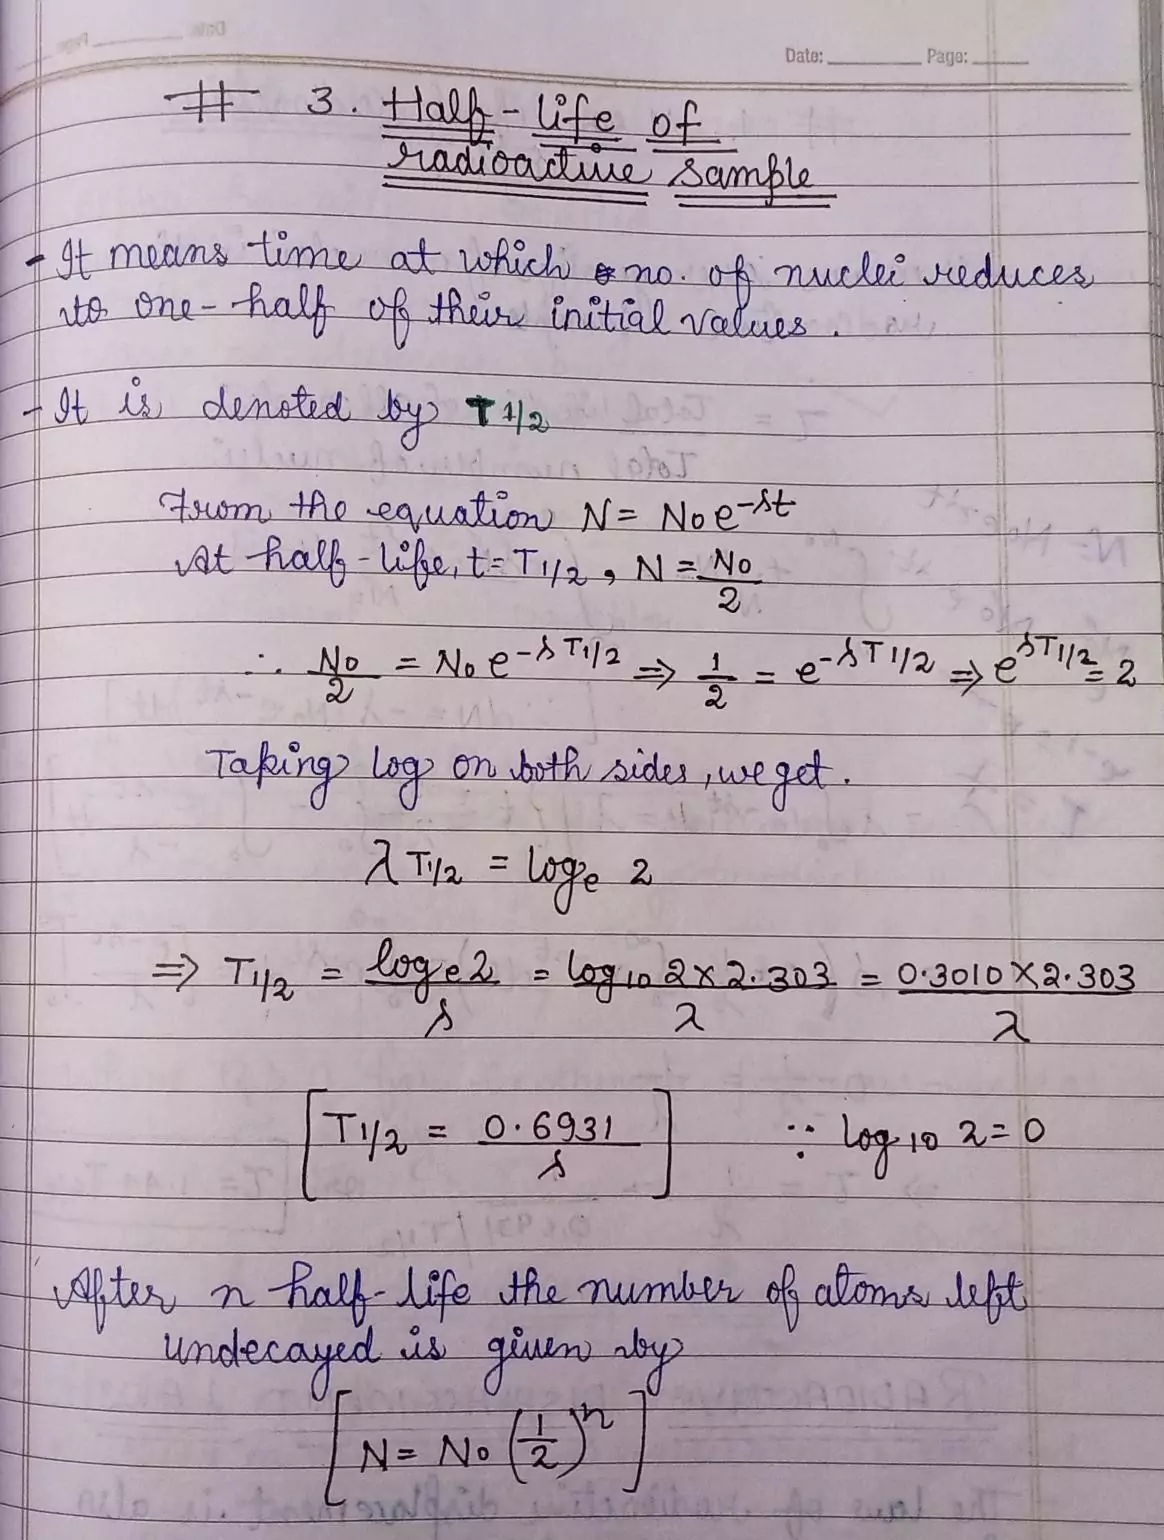 Date: ______ Page: ______
# 3. Half-life of
radioactive sample
- It means time at which no. of nuclei reduces
to one-half of their initial values.
- It is denoted by T1/2
From the equation N = N₀e^-λt
At half-life, t = T1/2, N = N₀/2
∴ N₀/2 = N₀ e^-λT1/2 ⇒ 1/2 = e^-λT1/2 ⇒ e^λT1/2 = 2
Taking log on both sides, we get.
λT1/2 = logₑ 2
⇒ T1/2 = logₑ2/λ = log₁₀2×2.303/λ = 0.3010×2.303/λ
[T1/2 = 0.6931/λ] ∵ log₁₀ 2 = 0
After n half-life the number of atoms left
undecayed is given by
[N = N₀ (1/2)^n]